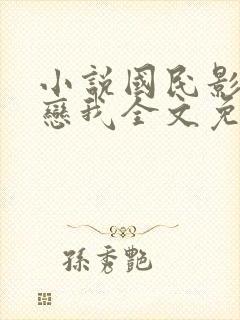 小說國民影
戀我全文免
孫秀艷